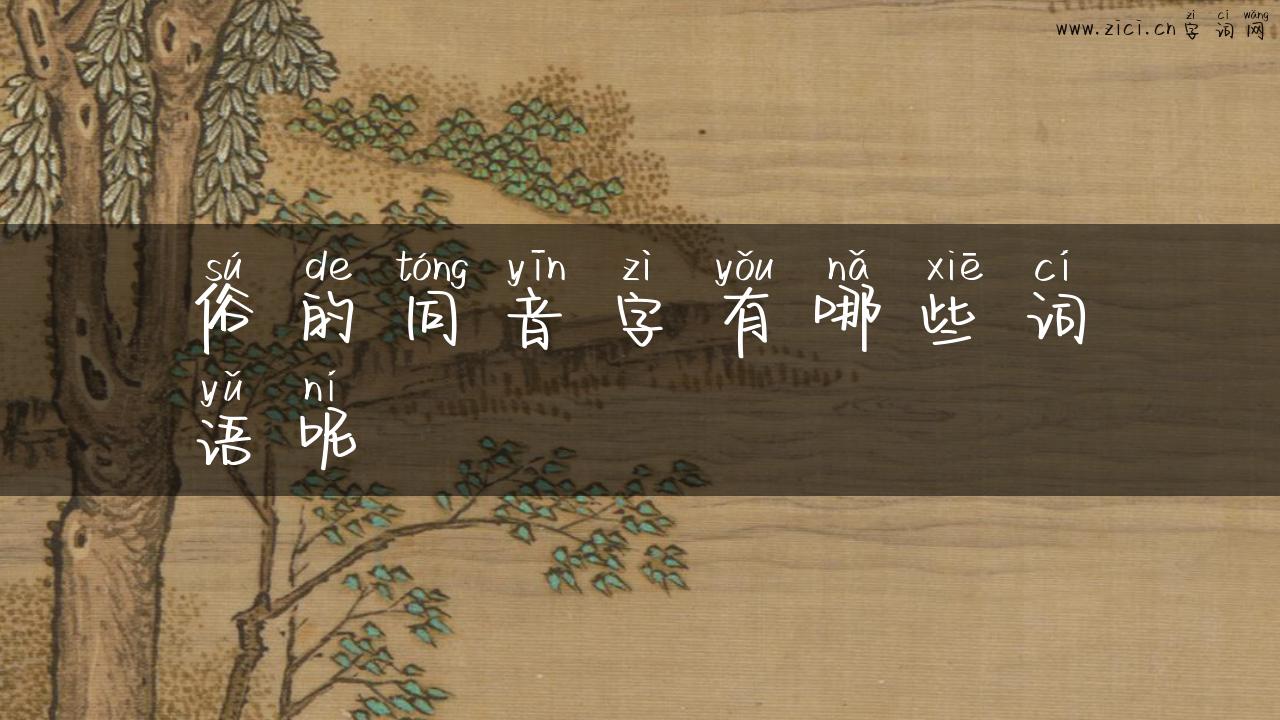 zì cí wǎng
www.zici.cn 字 词 网
sú de tóng yīn zì yǒu nǎ xiē cí
俗 的 同 音 字 有 哪 些 词
yǔ ní
语 呢